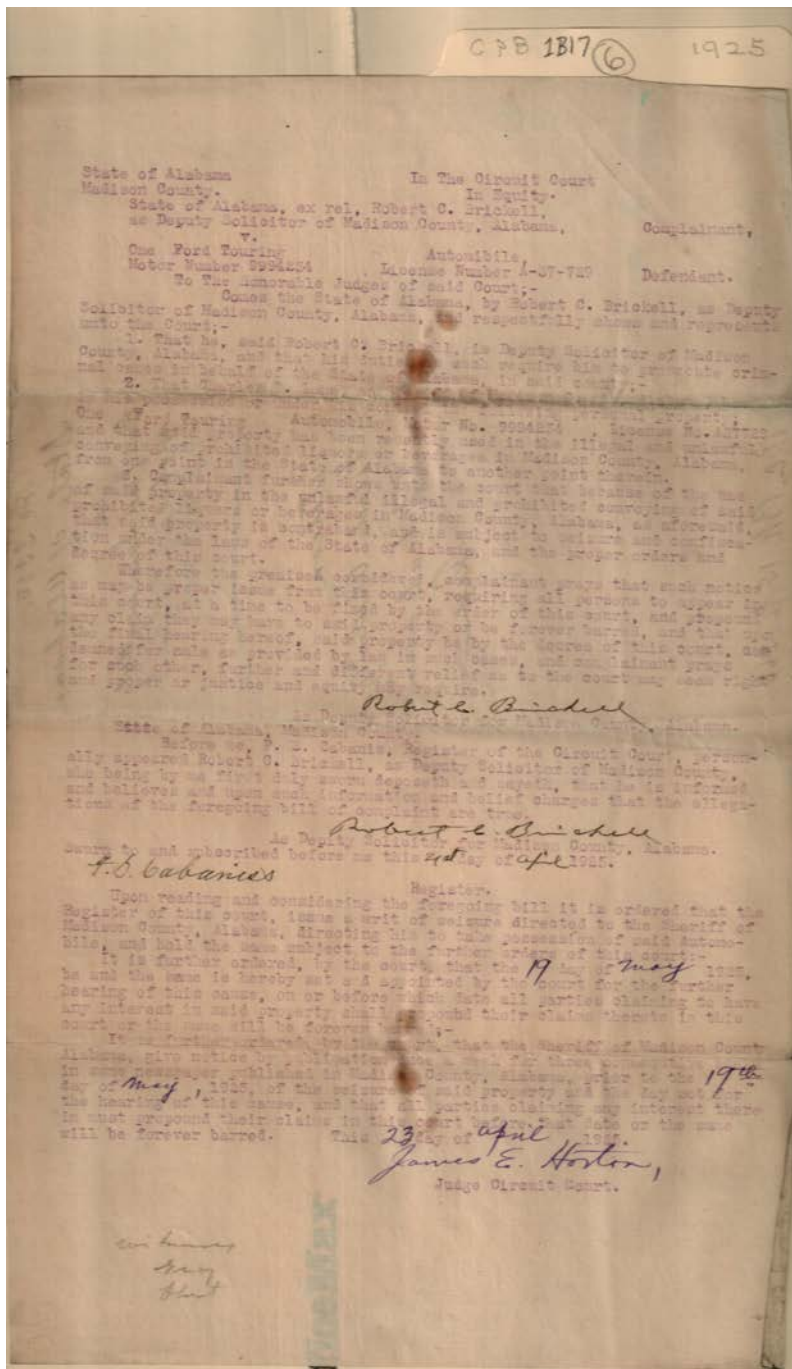 CPB 1B17 6 1925
State of Alabama In The Circuit Court
Madison County. In Equity.
State of Alabama, ex rel, Robert C. Brickell,
as Deputy Solicitor of Madison County, Alabama, Complainant,
v.
One Ford Touring Automibile,
Motor Number 9994254 License Number A-37-729 Defendant.
To The Honorable Judges of said Court;-
Comes the State of Alabama, by Robert C. Brickell, as Deputy
Solicitor of Madison County, Alabama, and respectfully shows and represents
unto the Court;-
1. That he, said Robert C. Brickell, is Deputy Solicitor of Madison
County, Alabama, and that his duties as such require him to prosecute crim-
nal cases in behalf of the State of Alabama, in said county.-
2. That
One Ford Touring Automobile, Motor No. 9994254 License No.
and that said property has been recently used in the illegal and unlawful
conveying of prohibited liquors or beverages in Madison County, Alabama,
from one point in the State of Alabama to another point therein.
3. Complainant further shows unto the court that because of the use
of said property in the unlawful illegal and prohibited conveying of said
prohibited liquors or beverages in Madison County, Alabama, as aforesaid,
that said property is contraband, and is subject to seizure and confisca-
tion under the laws of the State of Alabama, and the proper orders and
decree of this court.
Wherefore the premises considered, complainant prays that such notice
as may be proper issue from this court, requiring all persons to appear in
this court, at a time to be fixed by the order of this court, and propound
any claim they may have to said property or be forever barred, and that upon
the final hearing hereof, said property be by the decree of this court,
for sale as provided by law in such cases, and complainant prays
for such other, further and different relief as to the court may seem right
and proper as justice and equity may require.
Robert C. Brickell
as Deputy Solicitor for Madison County, Alabama.
State of Alabama, Madison County.
Before me, P. D. Cabanis, Register of the Circuit Court, person-
ally appeared Robert C. Brickell, as Deputy Solicitor of Madison County,
who being by me first duly sworn deposeth and sayeth, that he is informed
and believes and upon such information and belief charges that the allega-
tions of the foregoing bill of complaint are true.
Robert C. Brickell
as Deputy Solicitor for Madison County, Alabama.
Sworn to and subscribed before me this 21st day of april 1925.
P. D. Cabaniss
Register.
Upon reading and considering the foregoing bill it is ordered that the
Register of this court, issue a writ of seizure directed to the Sheriff of
Madison County, Alabama, directing him to take possession of said Automo-
bile, and hold the same subject to the further orders of this court;-
It is further ordered, by the court, that the 19 day of may 1925,
be and the same is hereby set and appointed by the court for the further
hearing of this cause, on or before which date all parties claiming to have
any interest in said property shall propound their claims thereto in this
court or the same will be forever barred;-
It is further ordered, by the court, that the Sheriff of Madison County
Alabama, give notice by publication once a week for three
in some newspaper published in Madison County, Alabama, prior to the 19th
day of may, 1925, of the seizure of said property and the day set for
the hearing of this cause, and that all parties claiming any interest there
in must propound their claims in this court by said date or the same
will be forever barred. This 23 day of april 1925.
James E. Horton,
Judge Circuit Court.